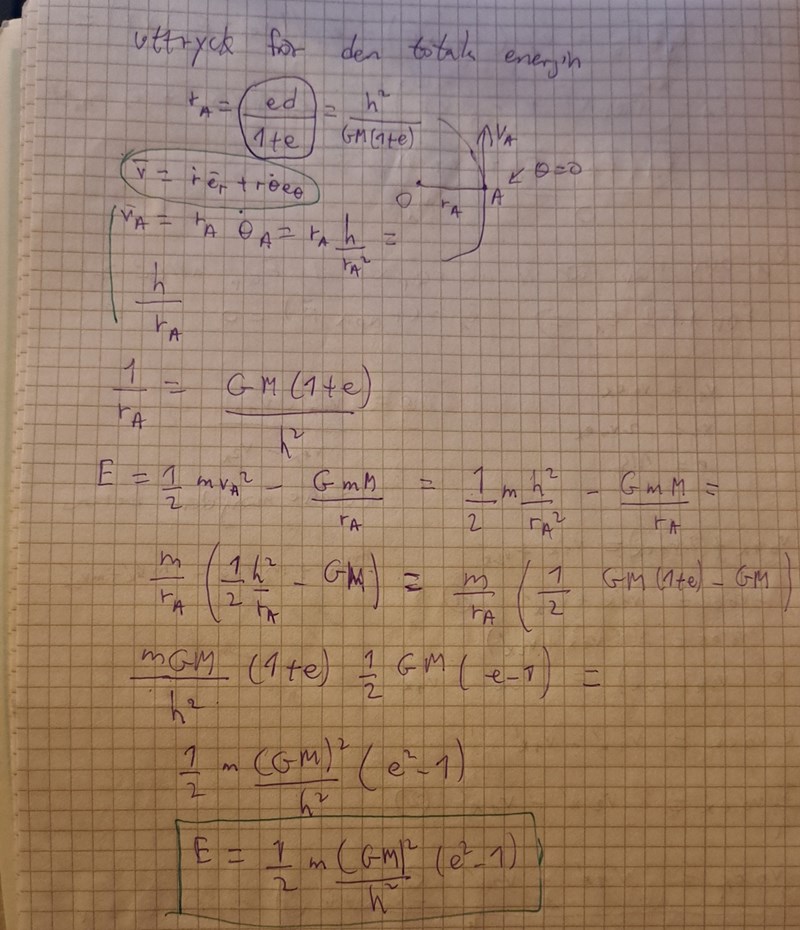 uttryck för den totala energin
r_A = ed/(1+e) = h²/(GM(1+e))
v_A
θ=0
O r_A A
v̄ = ṙ ē_r + r θ̇ e_θ
v̄_A = r_A θ̇_A = r_A h/r_A² =
h/r_A
1/r_A = GM(1+e)/h²
E = 1/2 m v_A² - GmM/r_A = 1/2 m h²/r_A² - GmM/r_A =
m/r_A (1/2 h²/r_A - GM) = m/r_A (1/2 GM(1+e) - GM)
mGM/h² (1+e) 1/2 GM (e-1) =
1/2 m (GM)²/h² (e²-1)
E = 1/2 m (GM)²/h² (e²-1)